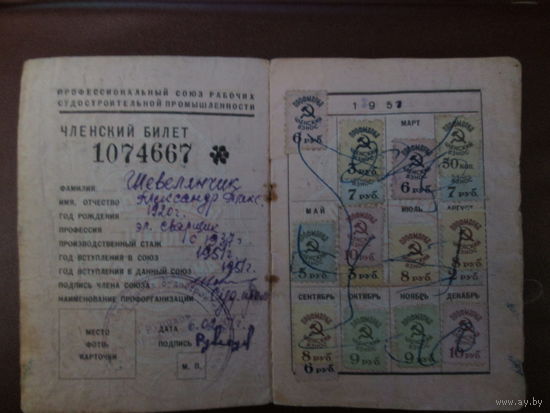 ПРОФЕССИОНАЛЬНЫЙ СОЮЗ РАБОЧИХ
СУДОСТРОИТЕЛЬНОЙ ПРОМЫШЛЕННОСТИ
ЧЛЕНСКИЙ БИЛЕТ
1074667
ФАМИЛИЯ Шевелянчик
ИМЯ, ОТЧЕСТВО
ГОД РОЖДЕНИЯ 1920 г.
ПРОФЕССИЯ эл. сварщик
ПРОИЗВОДСТВЕННЫЙ СТАЖ с 1937 г.
ГОД ВСТУПЛЕНИЯ В СОЮЗ 1951 г.
ГОД ВСТУПЛЕНИЯ В ДАННЫЙ СОЮЗ 1951 г.
ПОДПИСЬ ЧЛЕНА СОЮЗА
НАИМЕНОВАНИЕ ПРОФОРГАНИЗАЦИИ
МЕСТО
ФОТО
КАРТОЧКИ
ДАТА
ПОДПИСЬ
М. П.
1957
МАРТ
ПРОФМАРКА
ЧЛЕНСКИЙ
ВЗНОС
6 РУБ.
7 РУБ.
6 РУБ.
50 КОП.
7 РУБ.
МАЙ ИЮЛЬ АВГУСТ
5 РУБ.
10 РУБ.
3 РУБ.
8 РУБ.
8 РУБ.
СЕНТЯБРЬ ОКТЯБРЬ НОЯБРЬ ДЕКАБРЬ
8 РУБ.
6 РУБ.
9 РУБ.
9 РУБ.
10 РУБ.
www.ay.by